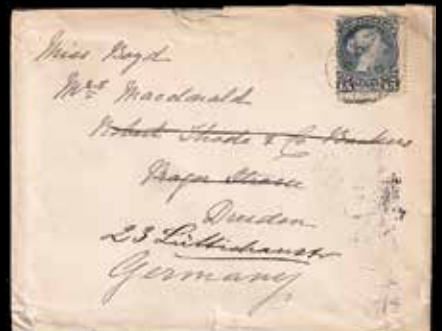 Miss Boyd
Mrs Macdonald
Robert Thode & Co Bankers
Prager Strasse
Dresden
23 Lüttichaustr
Germany